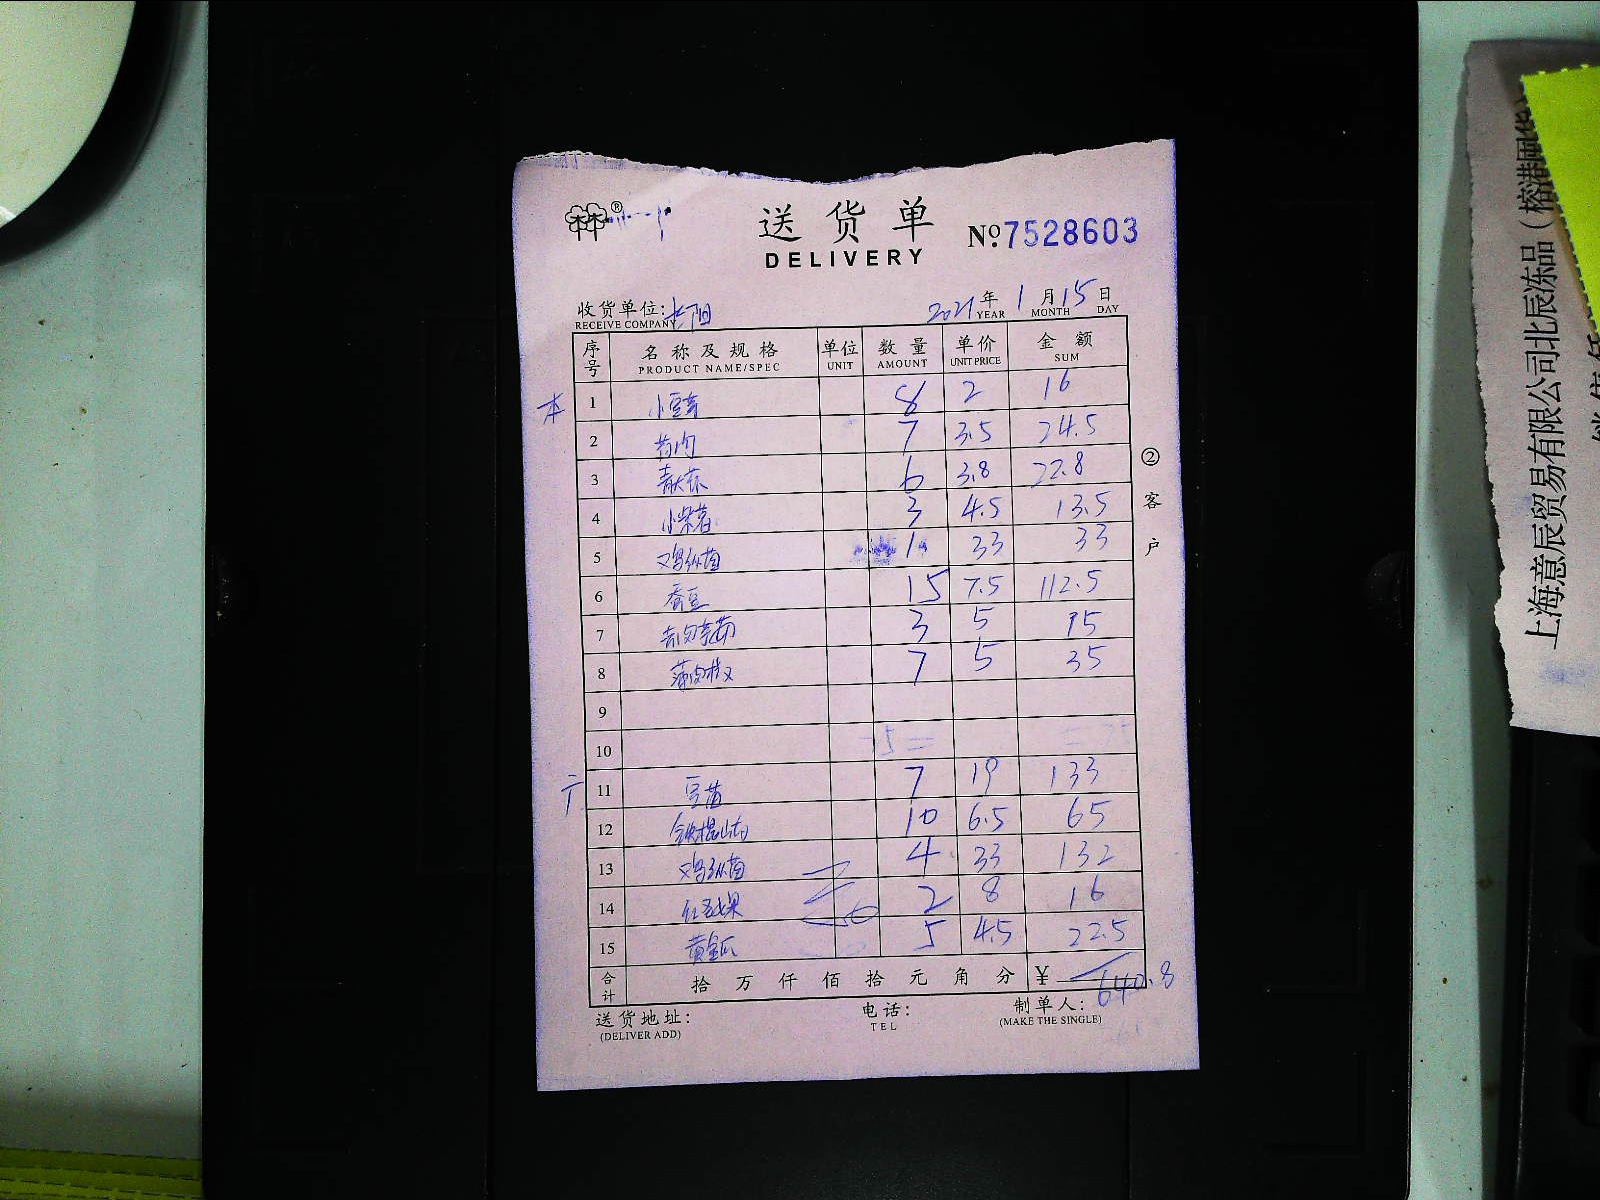 送货单
DELIVERY
№ 7528603
收货单位:
RECEIVE COMPANY
2021 年 1 月 15 日
YEAR MONTH DAY
序号 名称及规格 单位 数量 单价 金额
PRODUCT NAME/SPEC UNIT AMOUNT UNIT PRICE SUM
本 1 小豆苗 8 2 16
2 7 3.5 24.5
3 6 3.8 22.8
4 小紫薯 3 4.5 13.5
5 鸡纵菌 1 33 33
6 蚕豆 15 7.5 112.5
7 3 5 15
8 7 5 35
9
10
11 豆苗 7 19 133
12 铁棍山药 10 6.5 65
13 鸡纵菌 4 33 132
14 2 8 16
15 黄金瓜 5 4.5 22.5
合计 拾 万 仟 佰 拾 元 角 分 ¥ 640.8
送货地址: 电话: 制单人:
(DELIVER ADD) TEL (MAKE THE SINGLE)
② 客户
上海意辰贸易有限公司北辰冻品